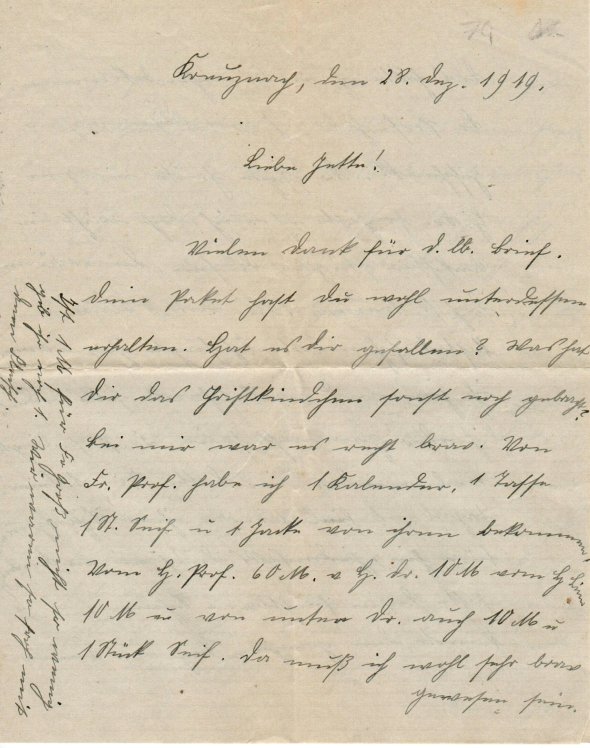 Kreuznach, den 28. Dez. 1919.
Liebe Jette!
Vielen Dank für d. lb. Brief.
Dein Paket hast Du wohl unterdessen
erhalten. Hat es dir gefallen? Was hat
dir das Christkindchen sonst noch gebracht?
Bei mir war es recht brav. Von
Fr. Prof. habe ich 1 Kalender, 1 Tasse
1 St. Seif u 1 Jacke von ihren bekommen,
Vom H. Prof. 60 M. v H. Dr. 10 M vom H
10 M u von unten Dr. auch 10 M u
1 Stück Seif. Da muß ich wohl sehr brav
gewesen sein.
1 M für